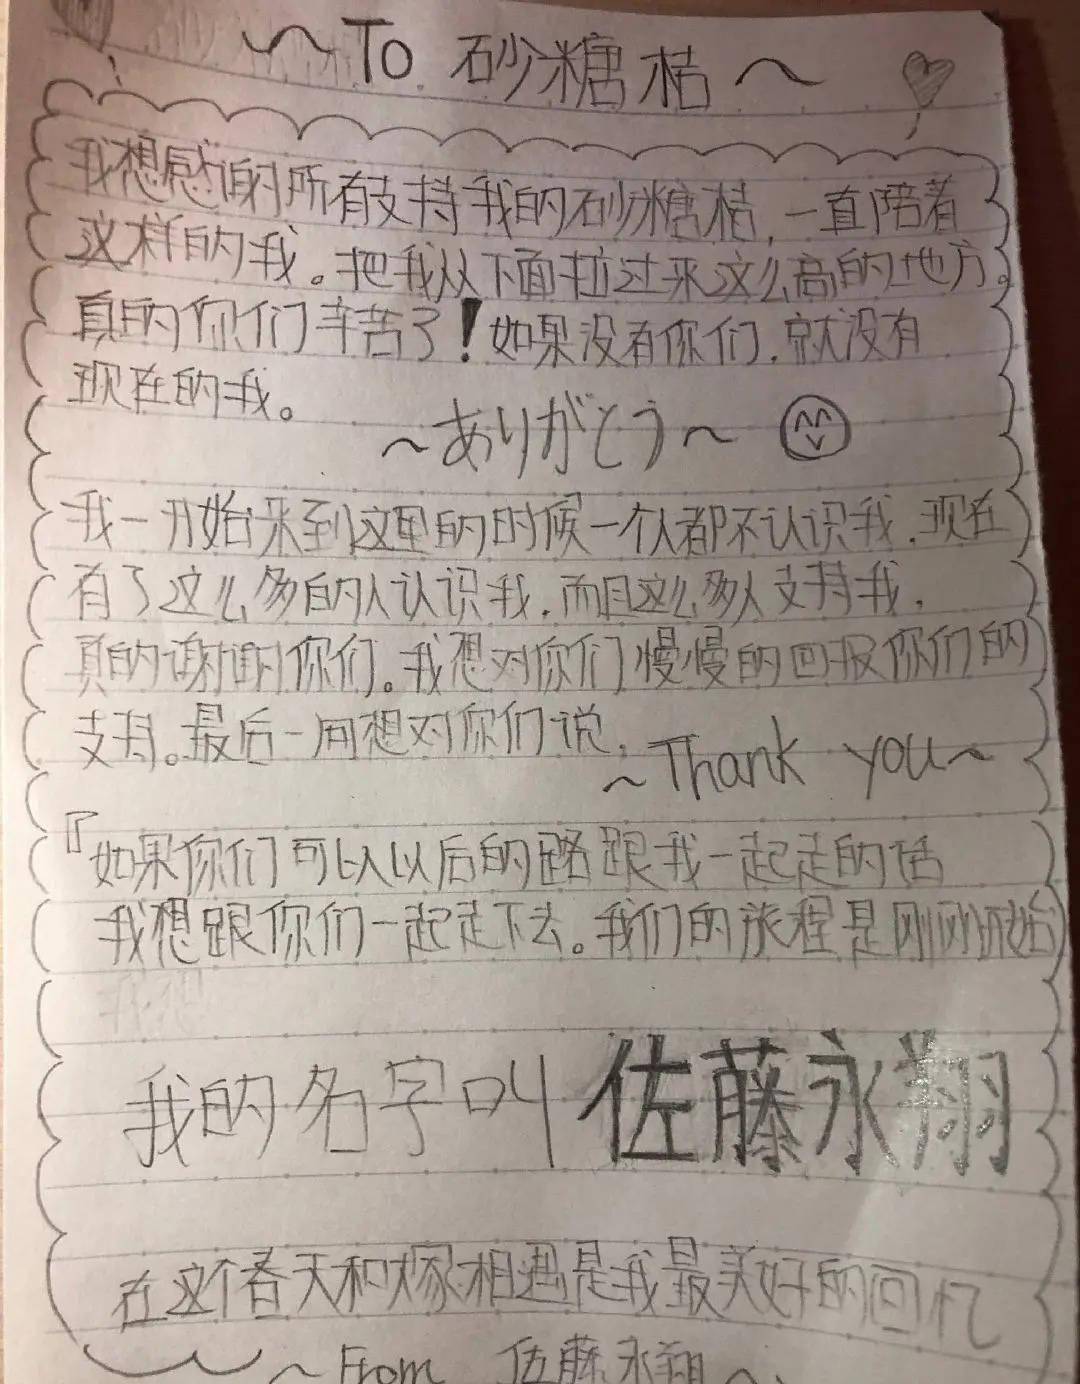 ~To 砂糖桔~
我想感谢所有支持我的砂糖桔,一直陪着
这样的我。把我从下面拉过来这么高的地方。
真的你们辛苦了!如果没有你们,就没有
现在的我。
~ありがとう~
我一开始来到这里的时候一个人都不认识我,现在
有了这么多的人认识我,而且这么多人支持我,
真的谢谢你们。我想对你们慢慢的回报你们的
支持。最后一间想对你们说,
~Thank you~
『如果你们可以以后的路跟我一起走的话
我想跟你们一起走下去。我们的旅程是刚刚开始
我想
我的名字叫 佐藤永翔
在这个春天和大家相遇是我最美好的回忆
~From 佐藤永翔~